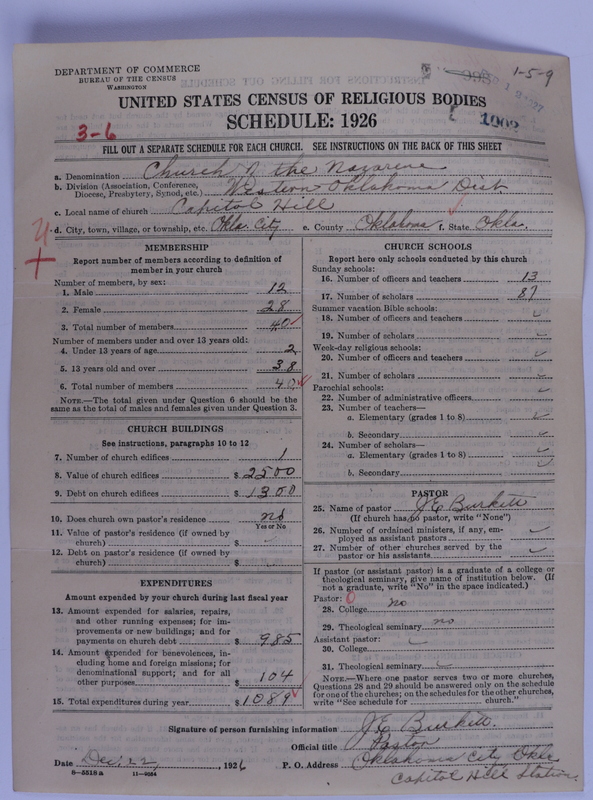 DEPARTMENT OF COMMERCE
BUREAU OF THE CENSUS
WASHINGTON
998
1-5-9
1902
UNITED STATES CENSUS OF RELIGIOUS BODIES
SCHEDULE: 1926
3-6
FILL OUT A SEPARATE SCHEDULE FOR EACH CHURCH. SEE INSTRUCTIONS ON THE BACK OF THIS SHEET
a. Denomination Church of the Nazarene
b. Division (Association, Conference, Diocese, Presbytery, Synod, etc.) Western Oklahoma Dist
c. Local name of church Capitol Hill
d. City, town, village, or township, etc. Okla. City e. County Oklahoma f. State Okla.
MEMBERSHIP
Report number of members according to definition of member in your church
Number of members, by sex:
1. Male 12
2. Female 28
3. Total number of members 40
Number of members under and over 13 years old:
4. Under 13 years of age 2
5. 13 years old and over 38
6. Total number of members 40
NOTE.—The total given under Question 6 should be the same as the total of males and females given under Question 3.
CHURCH BUILDINGS
See instructions, paragraphs 10 to 12
7. Number of church edifices 1
8. Value of church edifices $ 2500
9. Debt on church edifices $ 1300
10. Does church own pastor's residence no
Yes or No
11. Value of pastor's residence (if owned by church) $
12. Debt on pastor's residence (if owned by church) $
EXPENDITURES
Amount expended by your church during last fiscal year
13. Amount expended for salaries, repairs, and other running expenses; for improvements or new buildings; and for payments on church debt $ 985
14. Amount expended for benevolences, including home and foreign missions; for denominational support; and for all other purposes $ 104
15. Total expenditures during year $ 1089
CHURCH SCHOOLS
Report here only schools conducted by this church
Sunday schools:
16. Number of officers and teachers 13
17. Number of scholars 87
Summer vacation Bible schools:
18. Number of officers and teachers
19. Number of scholars
Week-day religious schools:
20. Number of officers and teachers
21. Number of scholars
Parochial schools:
22. Number of administrative officers
23. Number of teachers—
a. Elementary (grades 1 to 8)
b. Secondary
24. Number of scholars—
a. Elementary (grades 1 to 8)
b. Secondary
PASTOR
25. Name of pastor J E Burkett
(If church has no pastor, write "None")
26. Number of ordained ministers, if any, employed as assistant pastors
27. Number of other churches served by the pastor or his assistants
If pastor (or assistant pastor) is a graduate of a college or theological seminary, give name of institution below. (If not a graduate, write "No" in the space indicated.)
Pastor: 0
28. College no
29. Theological seminary no
Assistant pastor:
30. College
31. Theological seminary
NOTE.—Where one pastor serves two or more churches, Questions 28 and 29 should be answered only on the schedule for one of the churches; on the schedules for the other churches, write "See schedule for church."
Signature of person furnishing information J E Burkett.
Official title Pastor
Date Dec. 22, 1926 P. O. Address Oklahoma City Okla
Capitol Hill Station.
8-5518 a 11-9054